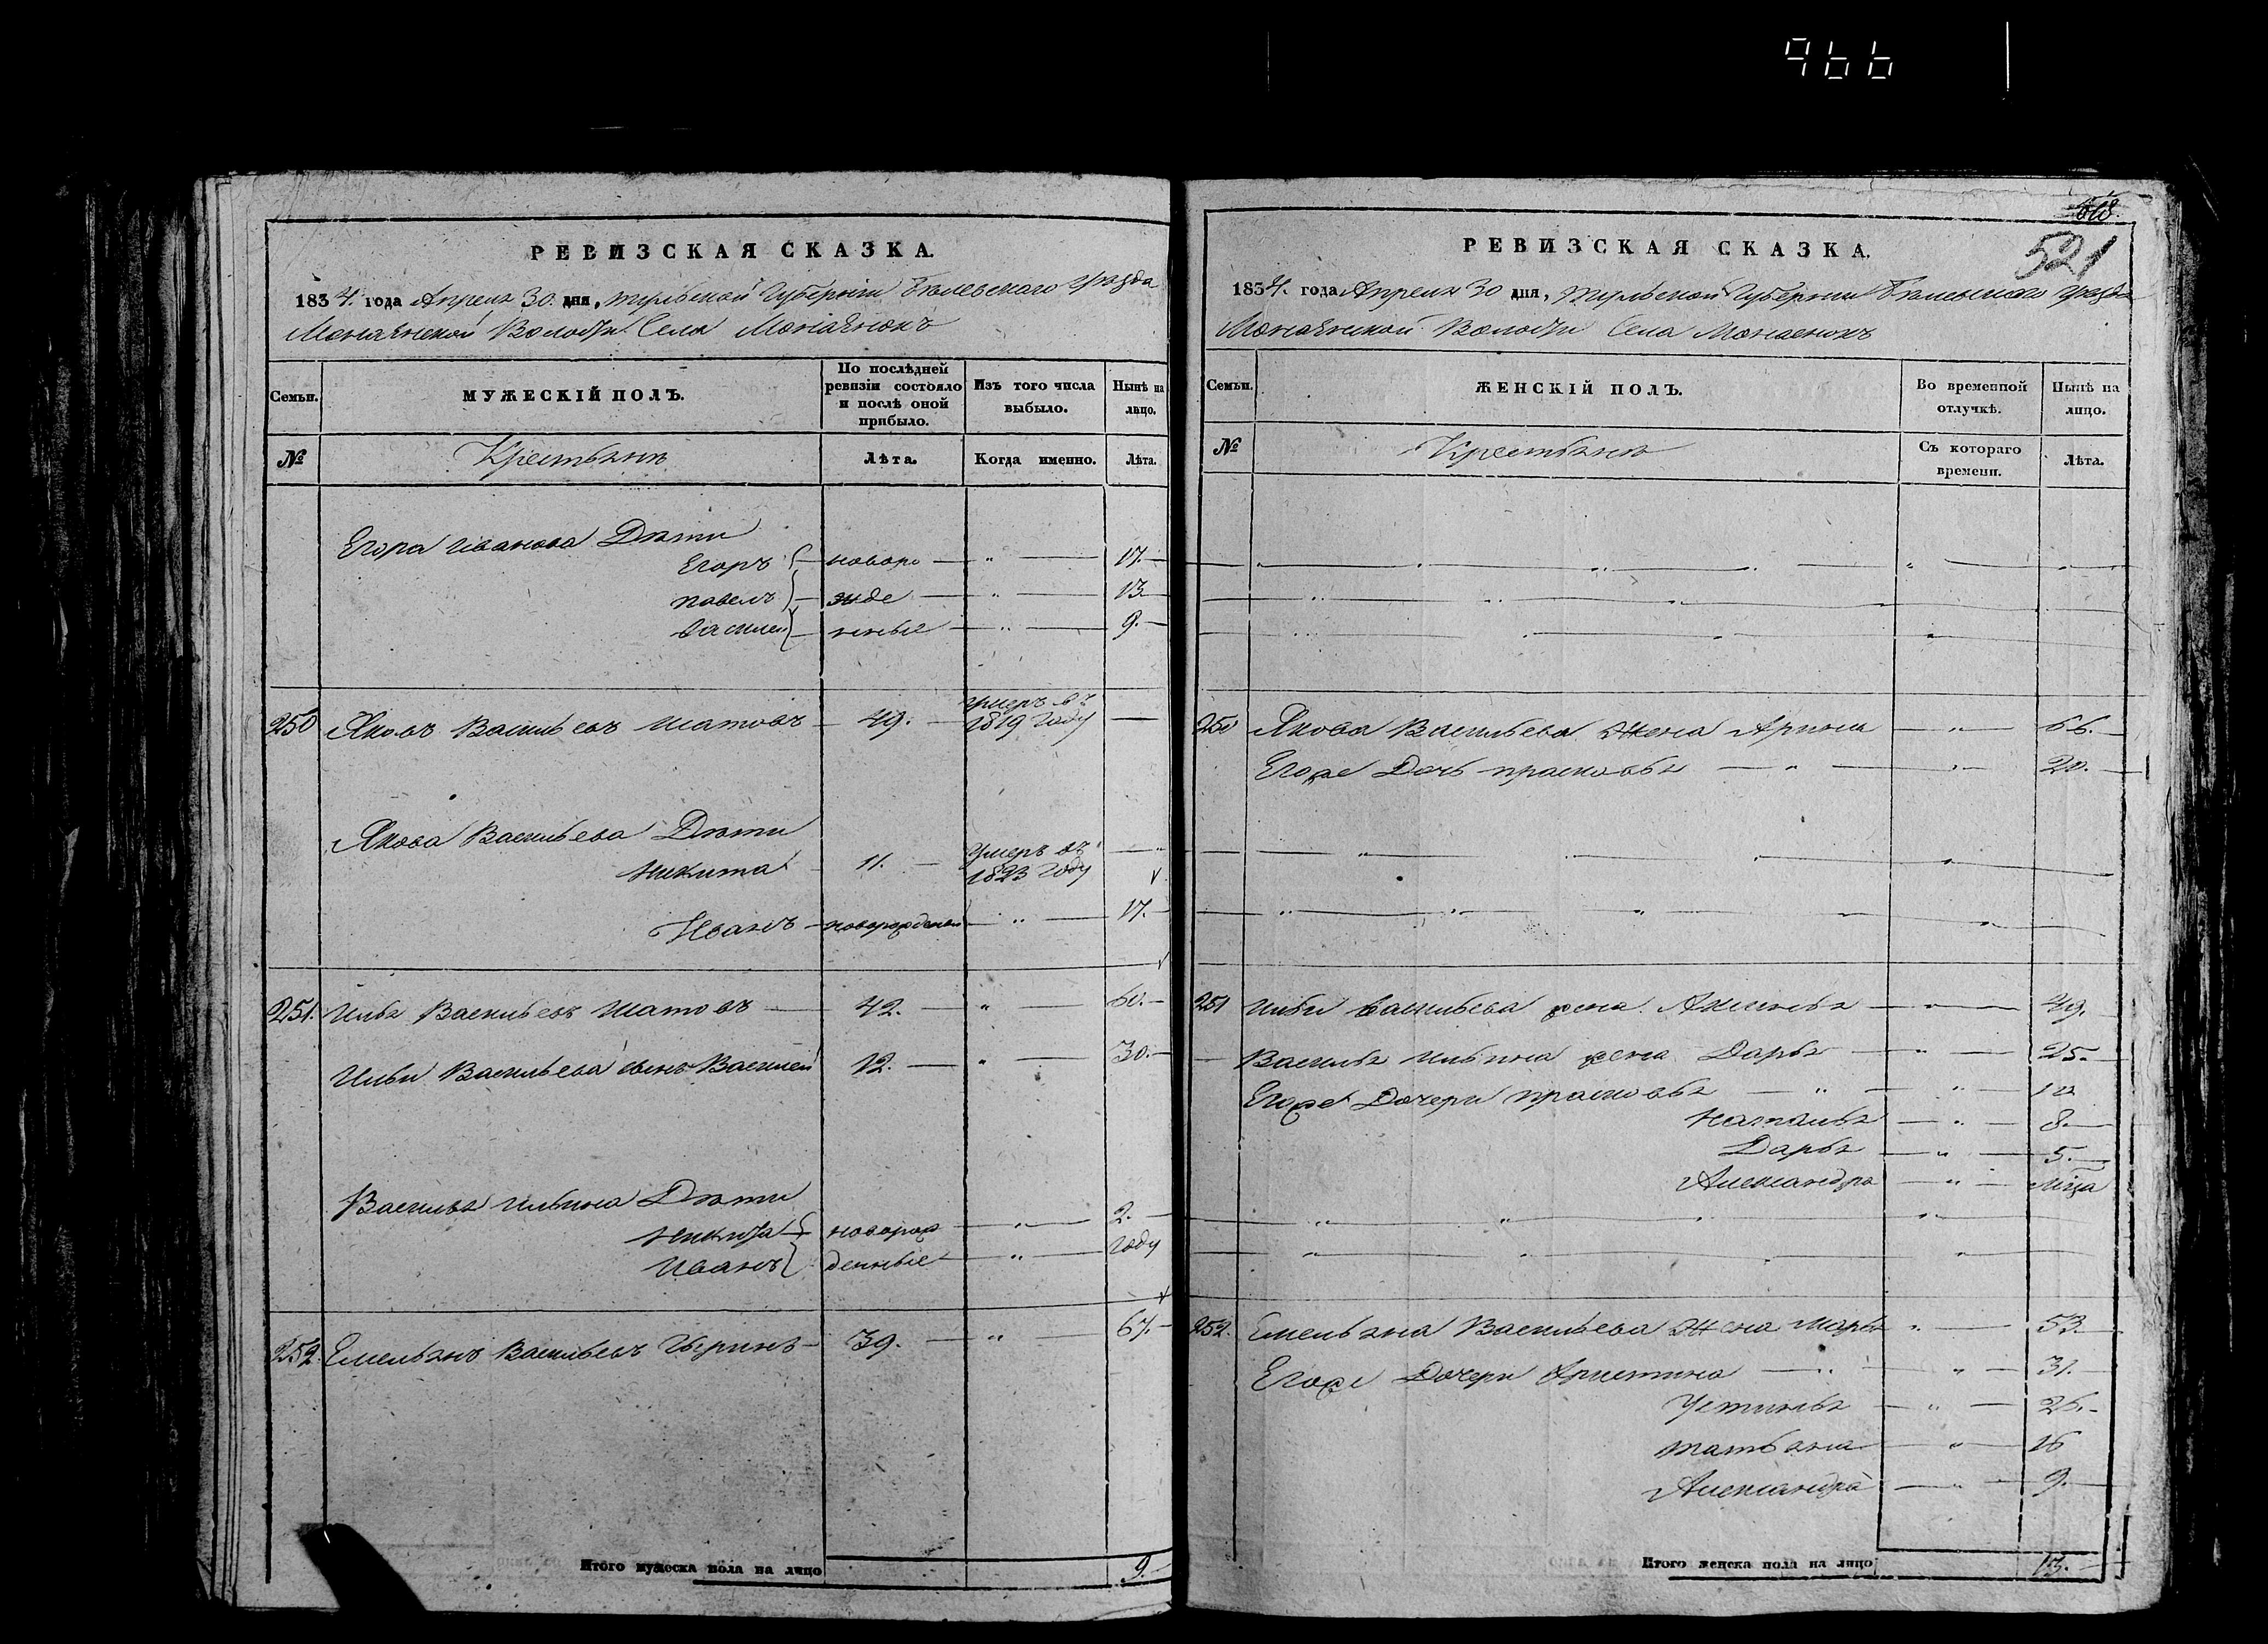 966
РЕВИЗСКАЯ СКАЗКА.
1834. года Апреля 30. дня, Тульской Губернiи Бѣлевскаго уѣзда
Волости Села
Семьи.
МУЖЕСКIЙ ПОЛЪ.
По послѣдней ревизiи состояло и послѣ оной прибыло.
Изъ того числа выбыло.
Нынѣ на лицо.
№
Крестьянъ
Лѣта.
Когда именно.
Лѣта.
Егора Иванова Дѣти
Егоръ новоро " 17.
павелъ жде " 13
василей нные " 9.
250 Яковъ Васильевъ Шатовъ 49. умеръ въ 1819 году
Якова Васильева Дѣти
Никита 11. Умеръ въ 1823 году
Иванъ новорожденый " 17.
251. Илья Васильевъ Шатовъ 42. " 60.
Ильи Васильева сынъ Василей 12. " 30.
Василья Ильина Дѣти
Никита новорож " 2.
Иванъ денные " году
252. Емельянъ Васильевъ 39. " 67.
Итого мужеска пола на лицо 9.
518.
521
РЕВИЗСКАЯ СКАЗКА.
1834. года Апреля 30 дня, Тульской Губернiи Бѣлевскаго уѣзда
Волости Села
Семьи.
ЖЕНСКIЙ ПОЛЪ.
Во временной отлучкѣ.
Нынѣ на лицо.
№
Крестьянъ
Съ котораго времени.
Лѣта.
250 Якова Васильева Жена Арина " 66.
Егоже Дочь прасковья " " 20.
251 Ильи Васильева жена Аксинья " 49.
Василья Ильина жена Дарья " 25.
Егоже Дочери прасковья " "
Наталья " 8.
Дарья " 5.
Александра " мѣца
252. Емельяна Васильева Жена Марья " 53.
Егоже Дочери Христина " " 31.
Устинья " 26.
татьяна " 16
Александра " 9.
Итого женска пола на лицо 13.